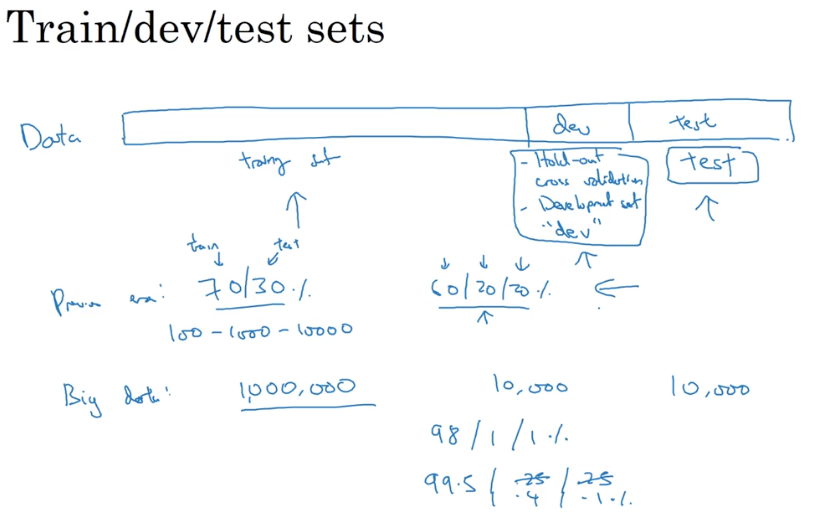 Train/dev/test sets
Data
dev
test
traing set
- Hold-out
cross validation
- Development set
"dev"
test
train test
Previous era: 70/30 % 60/20/20 %
100 - 1000 - 10000
Big data: 1,000,000 10,000 10,000
98 / 1 / 1 %
99.5 / .25 / .25
.4 .1 %